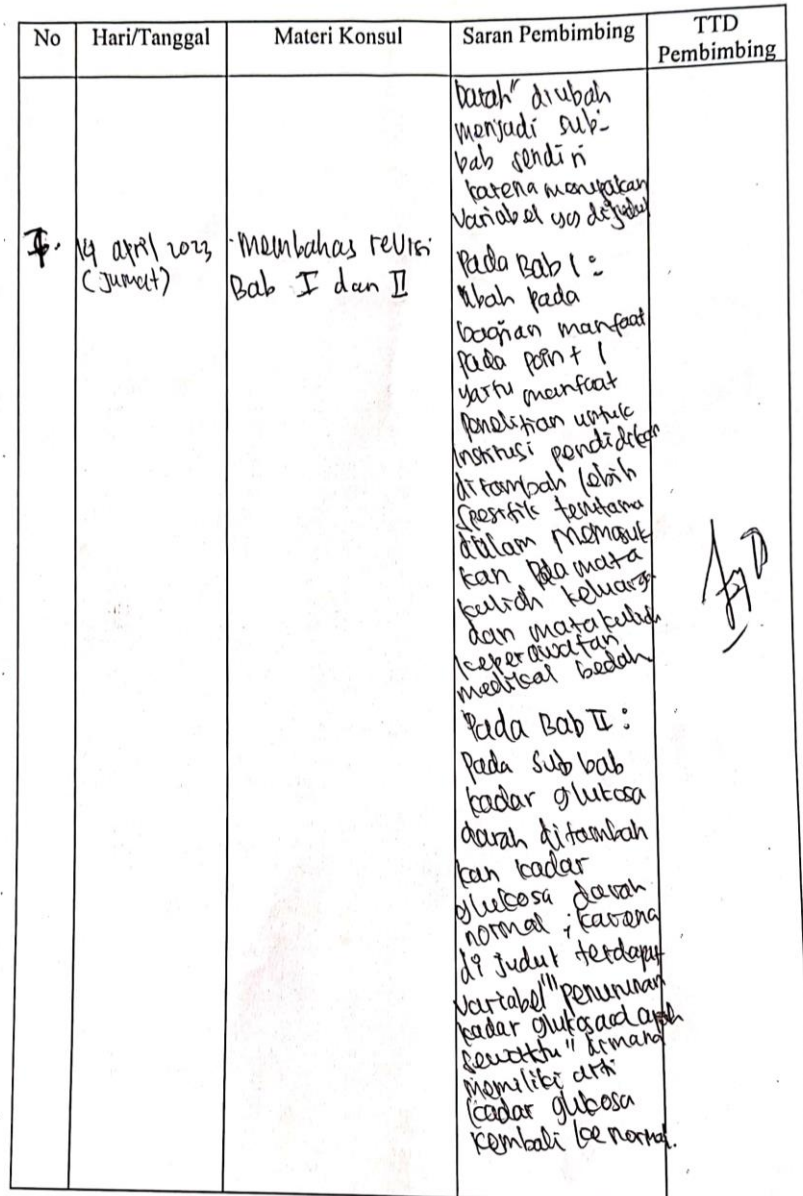 No Hari/Tanggal Materi Konsul Saran Pembimbing TTD Pembimbing
Darah" diubah
menjadi sub-
bab sendiri
karena merupakan
Variabel yg dijudul
14 april 2023
(Jumat)
- Membahas revisi
Bab I dan II
Pada Bab 1 :
Ubah pada
bagian manfaat
pada point 1
yaitu manfaat
penelitian untuk
institusi pendidikan
ditambah lebih
spesifik terutama
dalam memasuk
kan pada mata
kuliah keluarga
dan mata kuliah
keperawatan
medikal bedah
Pada Bab II :
Pada Sub bab
kadar glukosa
darah ditambah
kan kadar
glukosa darah
normal ; karena
di judul terdapat
Variabel "penurunan
kadar glukosa darah
sewaktu" dimana
memiliki arti
kadar glukosa
kembali ke normal.